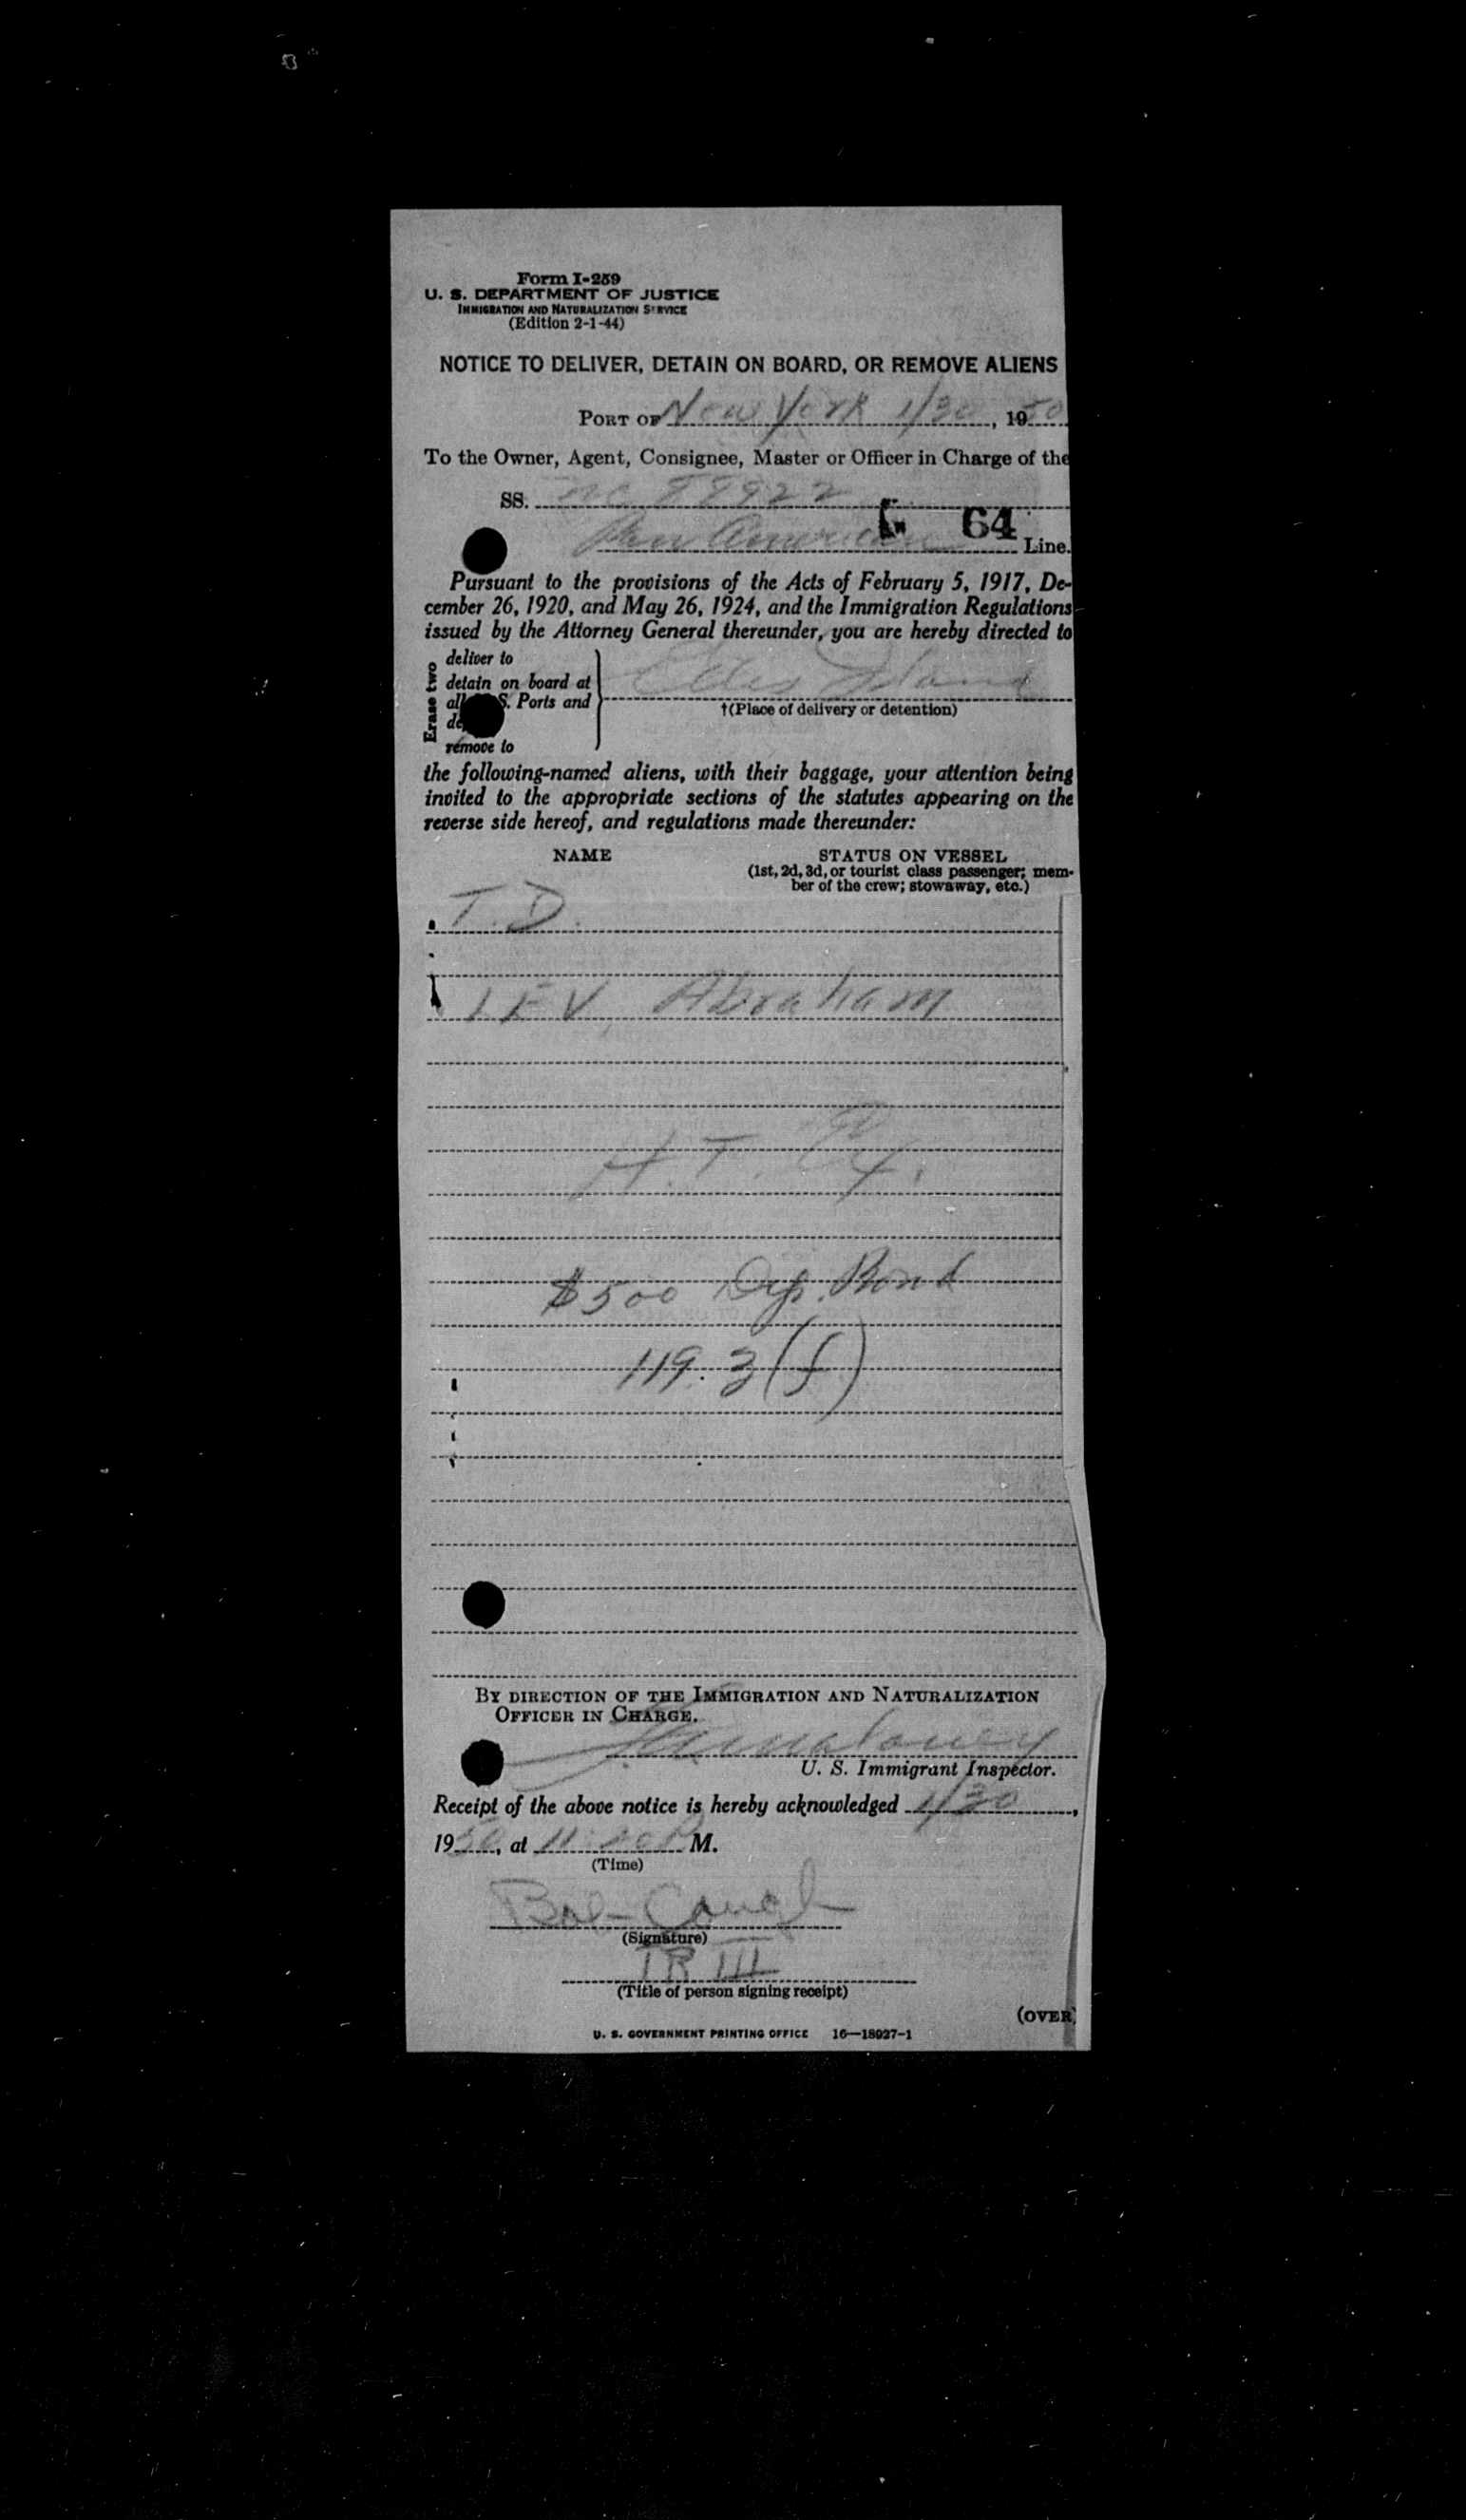 Form I-259
U. S. DEPARTMENT OF JUSTICE
IMMIGRATION AND NATURALIZATION SERVICE
(Edition 2-1-44)
NOTICE TO DELIVER, DETAIN ON BOARD, OR REMOVE ALIENS
PORT OF New York 1/30, 1950
To the Owner, Agent, Consignee, Master or Officer in Charge of the
SS. NC 88922
64
Pan American Line.
Pursuant to the provisions of the Acts of February 5, 1917, De-
cember 26, 1920, and May 26, 1924, and the Immigration Regulations
issued by the Attorney General thereunder, you are hereby directed to
Erase two
deliver to
detain on board at
all S. Ports and
remove to
Ellis Island
†(Place of delivery or detention)
the following-named aliens, with their baggage, your attention being
invited to the appropriate sections of the statutes appearing on the
reverse side hereof, and regulations made thereunder:
NAME STATUS ON VESSEL
(1st, 2d, 3d, or tourist class passenger; mem-
ber of the crew; stowaway, etc.)
T.D.
LEV, Abraham
H.T.
$500 Dep. Bond
119.3(f)
BY DIRECTION OF THE IMMIGRATION AND NATURALIZATION
OFFICER IN CHARGE.
U. S. Immigrant Inspector.
Receipt of the above notice is hereby acknowledged 1/30,
1950, at 11:20 P M.
(Time)
(Signature)
TR III
(Title of person signing receipt)
(OVER)
U. S. GOVERNMENT PRINTING OFFICE 16—18027-1